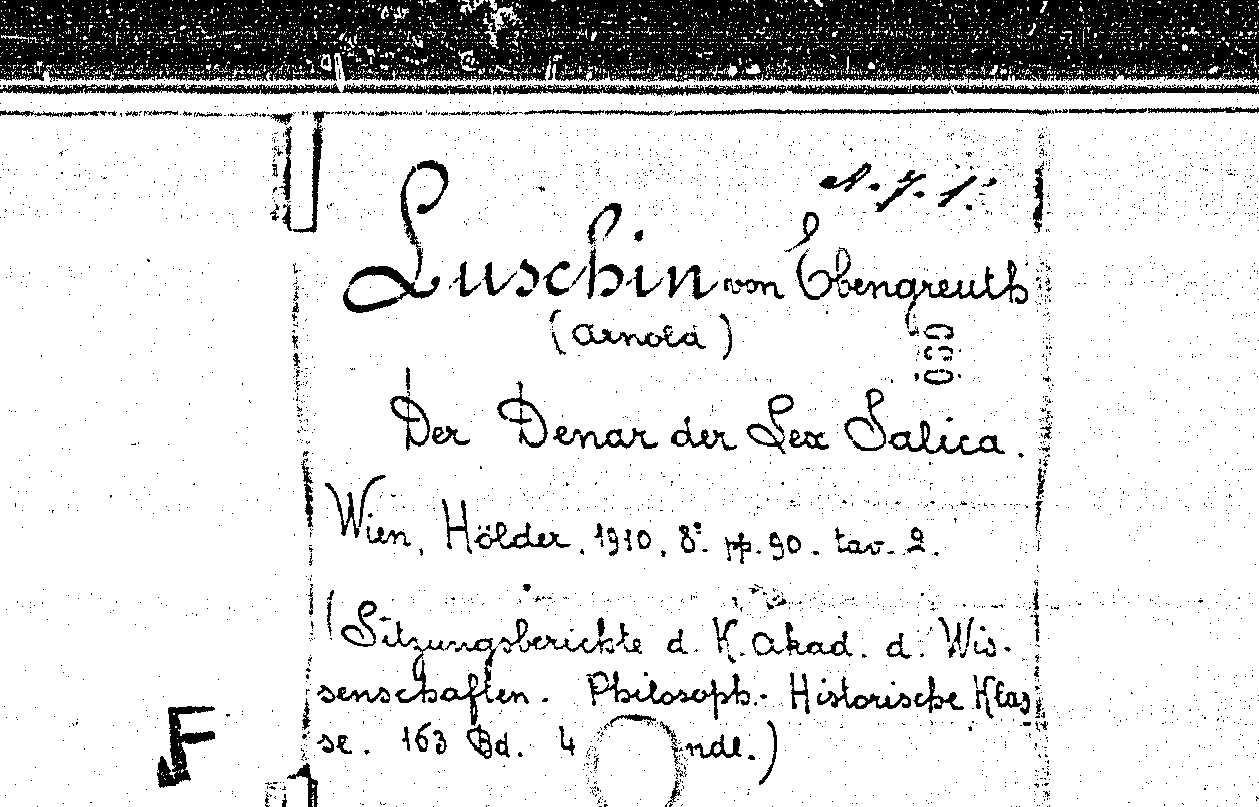 Luschin von Ebengreuth
(Arnold)
Der Denar der Lex Salica.
Wien, Hölder, 1910, 8° pp. 90. tav. 2.
(Sitzungsberichte d. K. Akad. d. Wis-
senschaften. Philosoph.- Historische Klas
se. 163 Bd. 4 ndl.)
F